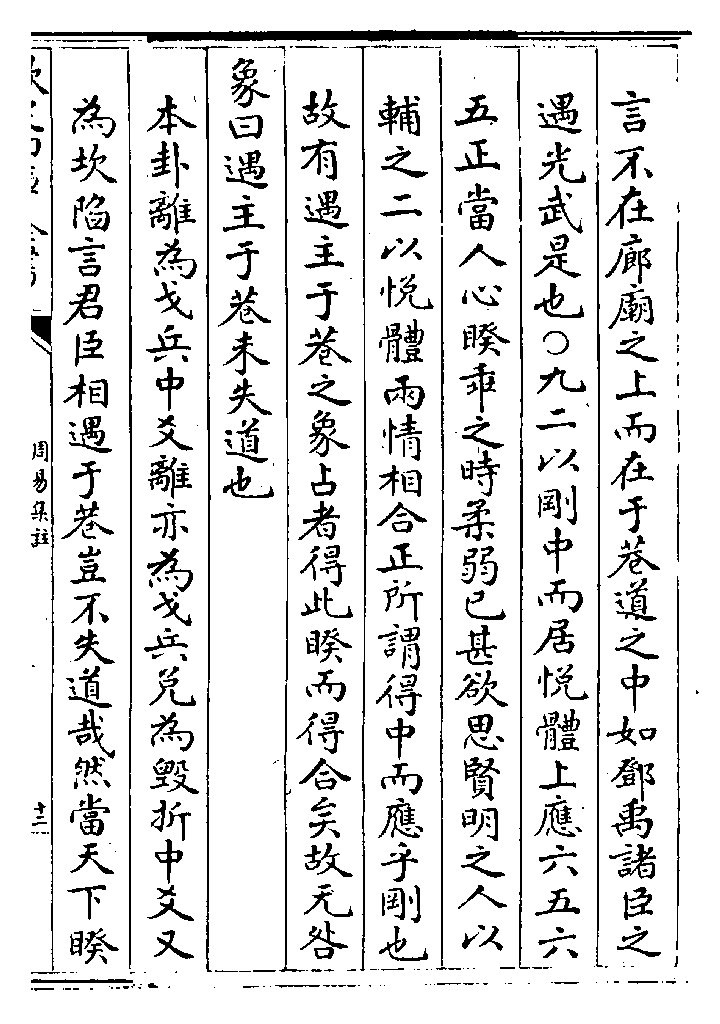 言不在廊廟之上而在于巷道之中如鄧禹諸臣之
遇光武是也○九二以剛中而居悅體上應六五六
五正當人心睽乖之時柔弱已甚欲思賢明之人以
輔之二以悅體兩情相合正所謂得中而應乎剛也
故有遇主于巷之象占者得此睽而得合矣故无咎
象曰遇主于巷未失道也
本卦離為戈兵中爻離亦為戈兵兌為毀折中爻又
為坎陷言君臣相遇于巷豈不失道哉然當天下睽
周易集註
十三